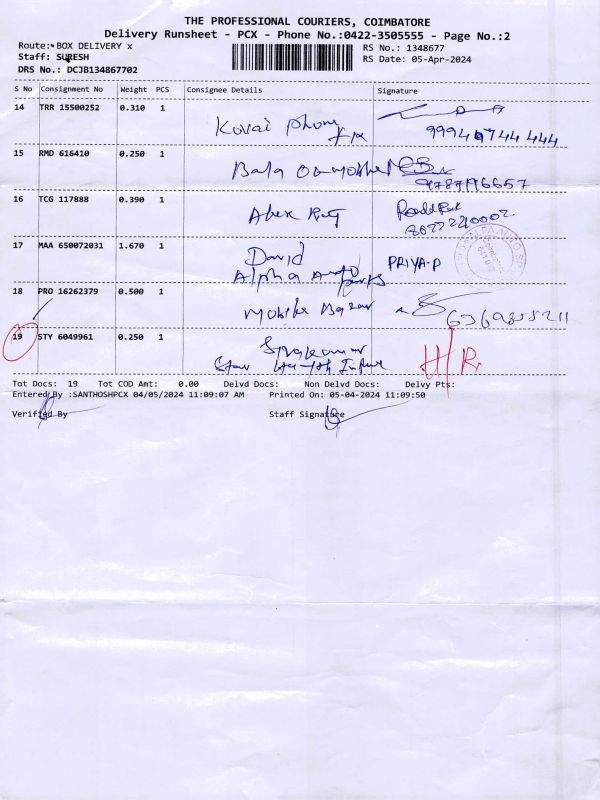 THE PROFESSIONAL COURIERS, COIMBATORE
Delivery Runsheet - PCX - Phone No.:0422-3505555 - Page No.:2
Route: BOX DELIVERY x
RS No.: 1348677
Staff: SURESH
RS Date: 05-Apr-2024
DRS No.: DCJB134867702
S No Consignment No Weight PCS Consignee Details Signature
14 TRR 15500252 0.310 1
Kovai phone
15 RMD 616410 0.250 1
Bala
9787196657
16 TCG 117888 0.390 1
Alex
17 MAA 650072031 1.670 1
David
Alpha Auto Parts
PRIYA-P
18 PRO 16262379 0.500 1
Mobile Bazar
19 STY 6049961 0.250 1
Sivakumar
Star Health Insure
H/R
Tot Docs: 19 Tot COD Amt: 0.00 Delvd Docs: Non Delvd Docs: Delvy Pts:
Entered By :SANTHOSHPCX 04/05/2024 11:09:07 AM Printed On: 05-04-2024 11:09:50
Verified By Staff Signature